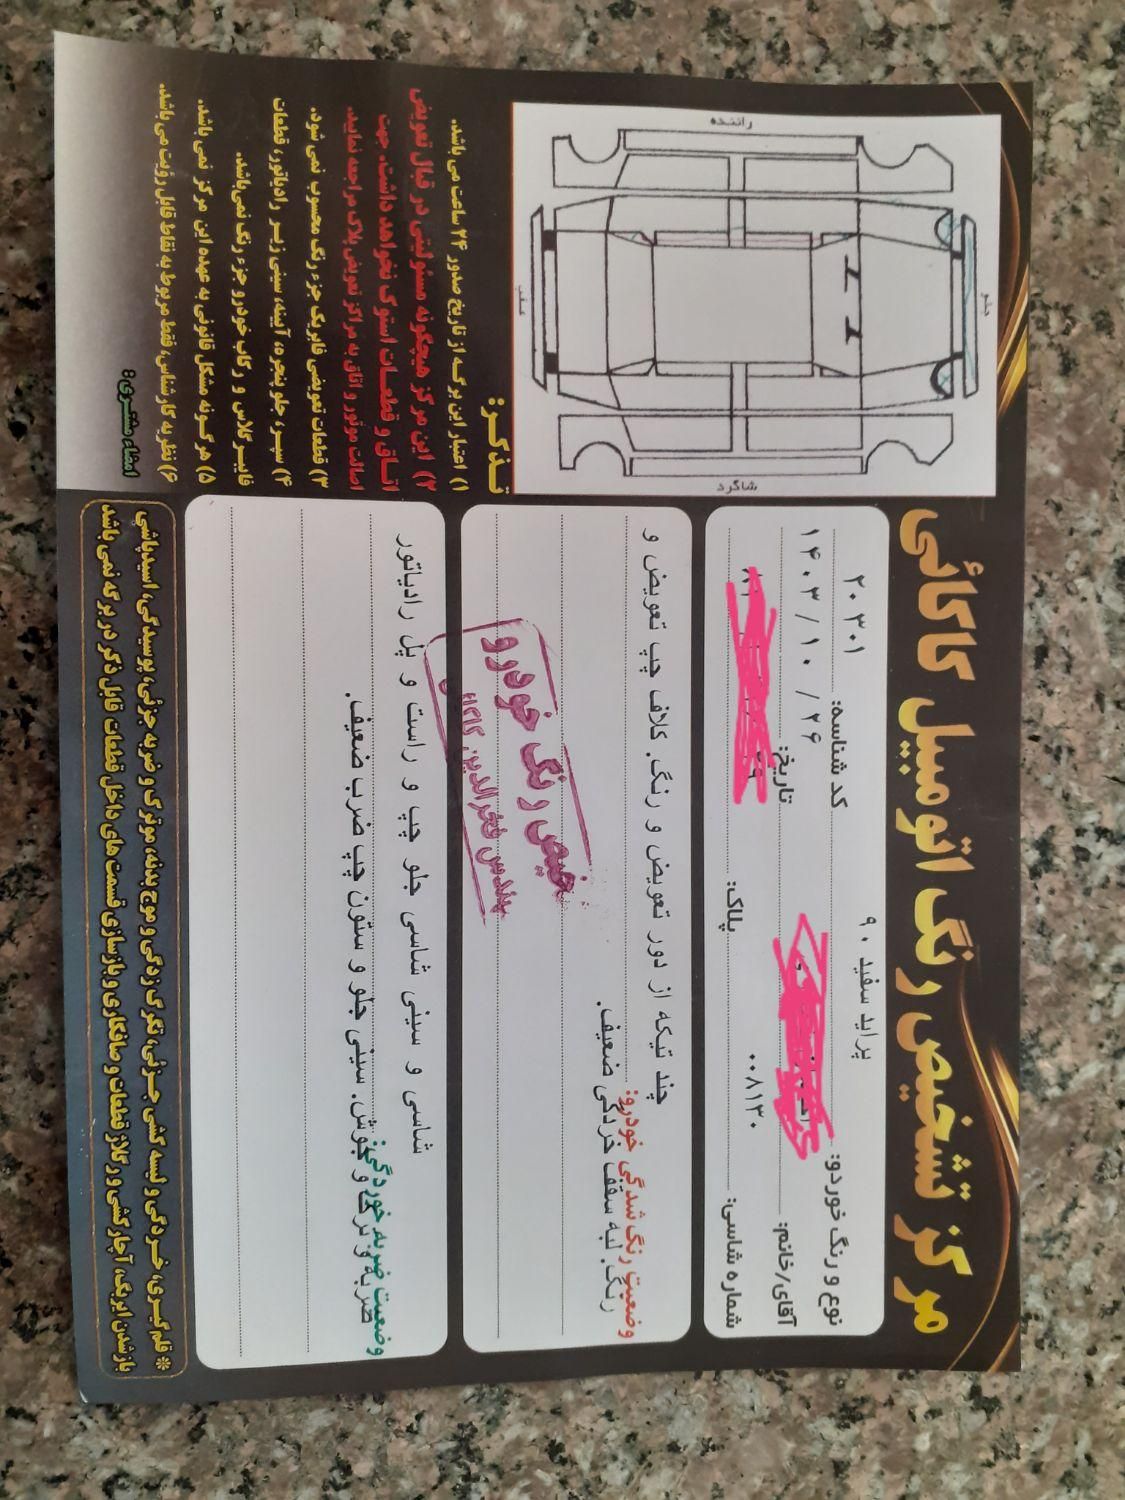 مرکز تشخیص رنگ اتومبیل کاکائی
کد شناسه: ۲۰۳۰۱
نوع و رنگ خودرو: پراید سفید ۹۰
تاریخ: ۱۴۰۳/۱۰/۲۶
آقای/خانم:
پلاک:
شماره شاسی: ۰۰۸۱۳۰
وضعیت رنگ شدگی خودرو:
چند تیکه از دور تعویض و رنگ. کلاف چپ تعویض و
رنگ. لبه سقف خردگی ضعیف.
تشخیص رنگ خودرو
مهندس فخرالدین کاکائی
وضعیت ضربه خوردگی:
شاسی و سینی شاسی جلو چپ و راست و پل رادیاتور
ضربه و ترک و جوش. سینی جلو و ستون چپ ضرب ضعیف.
راننده
جلو
عقب
شاگرد
تذکر:
۱) اعتبار این برگه از تاریخ صدور ۲۴ ساعت می باشد.
۲) این مرکز هیچگونه مسئولیتی در قبال تعویض
اتاق و قطعات استوک نخواهد داشت. جهت
اصالت موتور و اتاق به مراکز تعویض پلاک مراجعه نمایید.
۳) قطعات تعویضی فابریک جزء رنگ محسوب نمی شود.
۴) سپر، جلو پنجره، آیینه، سینی زیر رادیاتور، قطعات
فایبرگلاس و رکاب خودرو جزء رنگ نمی باشد.
۵) هرگونه مشکل قانونی به عهده این مرکز نمی باشد.
۶) نظریه کارشناس، فقط مربوط به نقاط قابل رؤیت می باشد.
امضاء مشتری:
* قلم گیری، خردگی و لیسه کشی جزئی، تگرگ زدگی و موج بدنه، موترک و ضربه جزئی، پوسیدگی، اسیدپاشی
باز شدن ایربگ، آچار کشی ورگلاژ قطعات و صافکاری و بازسازی قسمت های داخل قطعات قابل ذکر در برگه نمی باشد